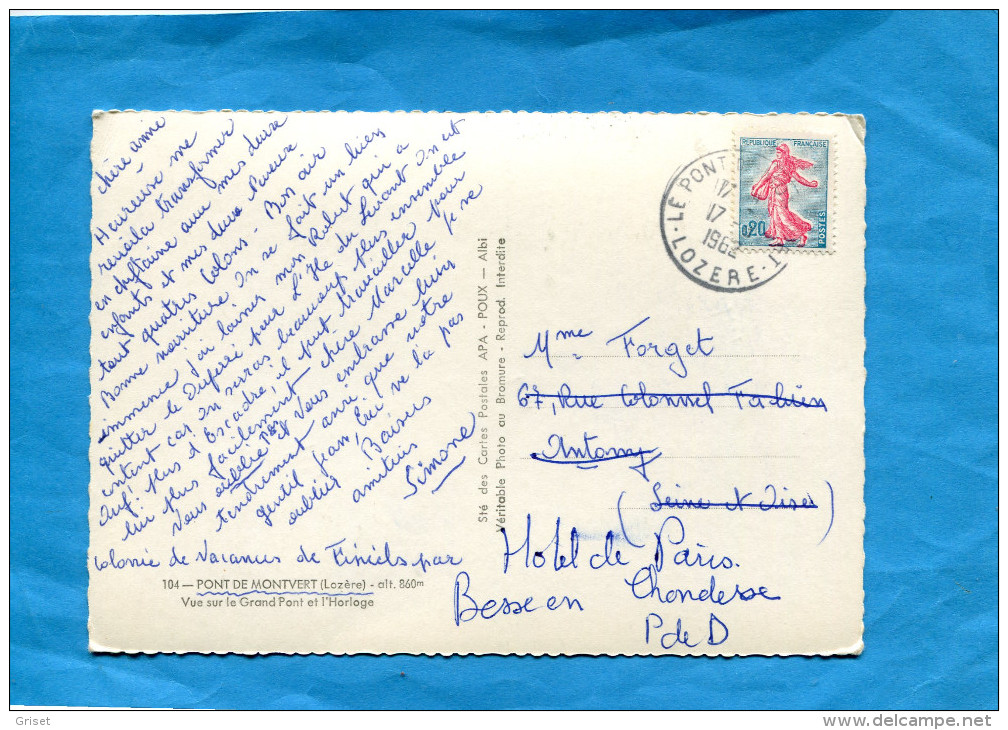 Chère amie
Heureuse me
revoila transformer
en cheftaine avec mes deux
enfants et mes deux neveux
tout quatres colons - Bon air
Bonne nourriture On se fait un bien
immense j'ai laisser mon Robert qui a
quitter le pour L'Ile du Levant On est
content car on serras beaucoup plus ensemble
plus d'Escadre, il peut travailler pour
lui plus facilement chère Marcelle je ne
Vous oublié Pas et Vous embrasse bien
tendrement ainsi que notre
gentil Jean, lui ne la pas
oublier Baisers
amitiés
Simone
Colonie de Vacances de Finiels par
104 — PONT DE MONTVERT (Lozère) - alt. 860m
Vue sur le Grand Pont et l'Horloge
Sté des Cartes Postales APA - POUX — Albi
Véritable Photo au Bromure - Reprod. Interdite
LE PONT
17
17
1962
LOZERE
REPUBLIQUE FRANÇAISE
0,20
POSTES
Mme Forget
67, Rue Colonnel
Antony
(Seine et Oise)
Hotel de Paris.
Besse en Chandesse
P de D
Griset
www.delcampe.net